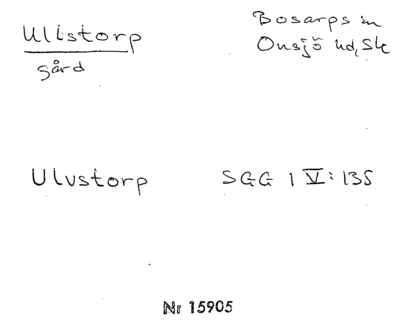 Ullstorp
gård
Bosarps sn
Onsjö hd, Sk
Ulvstorp SGG 1 V: 135
Nr 15905